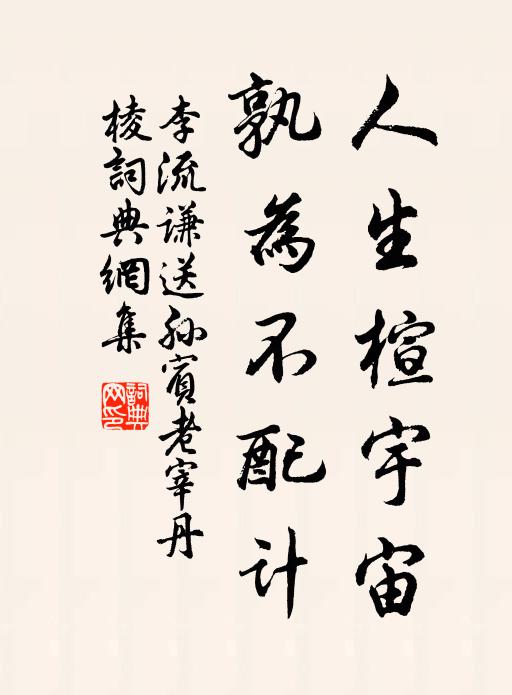 人生楦宇宙
孰為不配计
李流谦送孙宾老宰丹
棱詞典網集
詞典網印